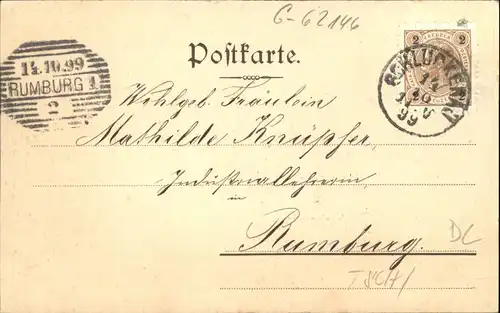 G-62146
14.10.99
RUMBURG 1
2
Postkarte.
2 2
14
10
99
Wohlgeb. Fräulein
Mathilde Knüpfer,
Industriallehrerin,
in
Rumburg.
DC